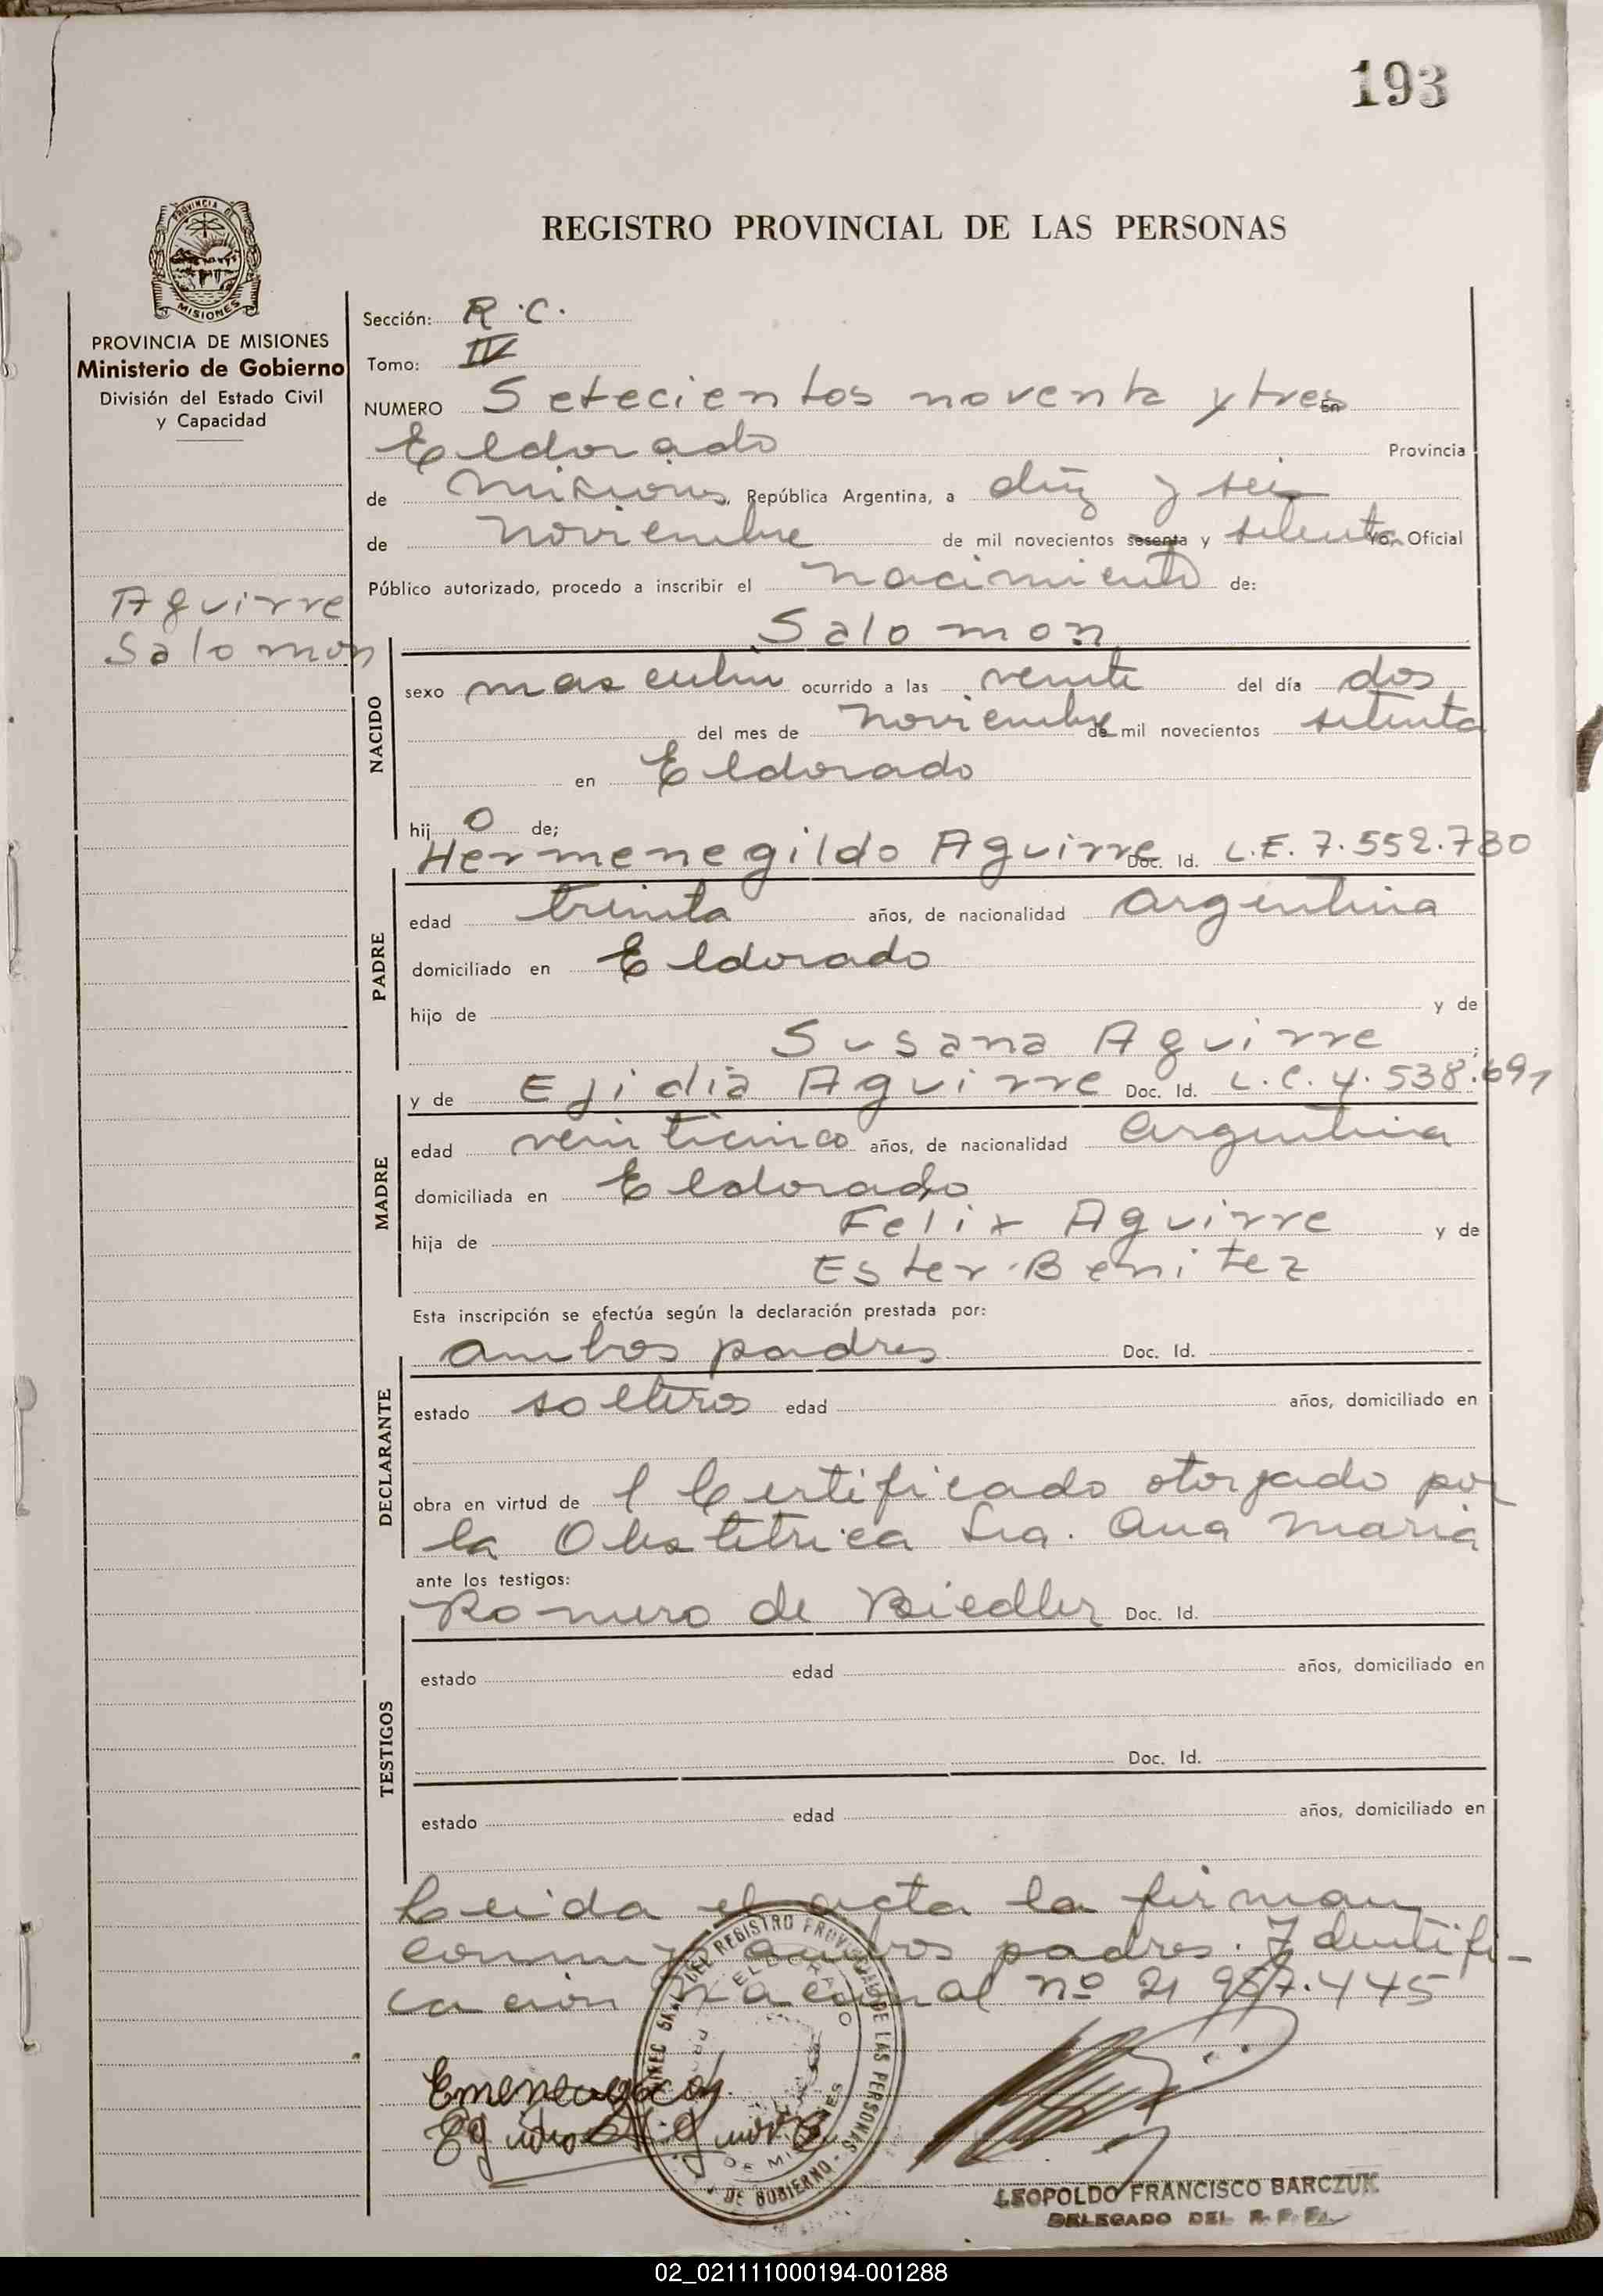 193
PROVINCIA DE
MISIONES
REGISTRO PROVINCIAL DE LAS PERSONAS
PROVINCIA DE MISIONES
Ministerio de Gobierno
División del Estado Civil
y Capacidad
Aguirre
Salomon
Sección: R.C.
Tomo: IV
NUMERO Setecientos noventa y tres En
Eldorado Provincia
de Misiones, República Argentina, a diez y seis
de Noviembre de mil novecientos sesenta y setenta Yo, Oficial
Público autorizado, procedo a inscribir el nacimiento de:
Salomon
NACIDO
sexo masculino ocurrido a las veinte del día dos
del mes de Noviembre de mil novecientos setenta
en Eldorado
hij o de;
Hermenegildo Aguirre Doc. Id. L.E. 7.552.730
PADRE
edad treinta años, de nacionalidad argentina
domiciliado en Eldorado
hijo de y de
Susana Aguirre
y de Ejidia Aguirre Doc. Id. L.C. 4.538.691
MADRE
edad veinticinco años, de nacionalidad argentina
domiciliada en Eldorado
hija de Felix Aguirre y de
Ester Benitez
Esta inscripción se efectúa según la declaración prestada por:
ambos padres Doc. Id.
DECLARANTE
estado solteros edad años, domiciliado en
obra en virtud de 1 Certificado otorgado por
la Obstétrica Sra. Ana Maria
ante los testigos:
Romero de Biedler Doc. Id.
TESTIGOS
estado edad años, domiciliado en
Doc. Id.
estado edad años, domiciliado en
Leida el acta la firman
conmigo ambos padres. Identifi-
cacion Nacional nº 21 957.445
DIREC. GRAL. DEL REGISTRO PROVINCIAL DE LAS PERSONAS
ELDORADO
DE MISIONES
DE GOBIERNO
LEOPOLDO FRANCISCO BARCZUK
DELEGADO DEL R. P. P.
02_021111000194-001288